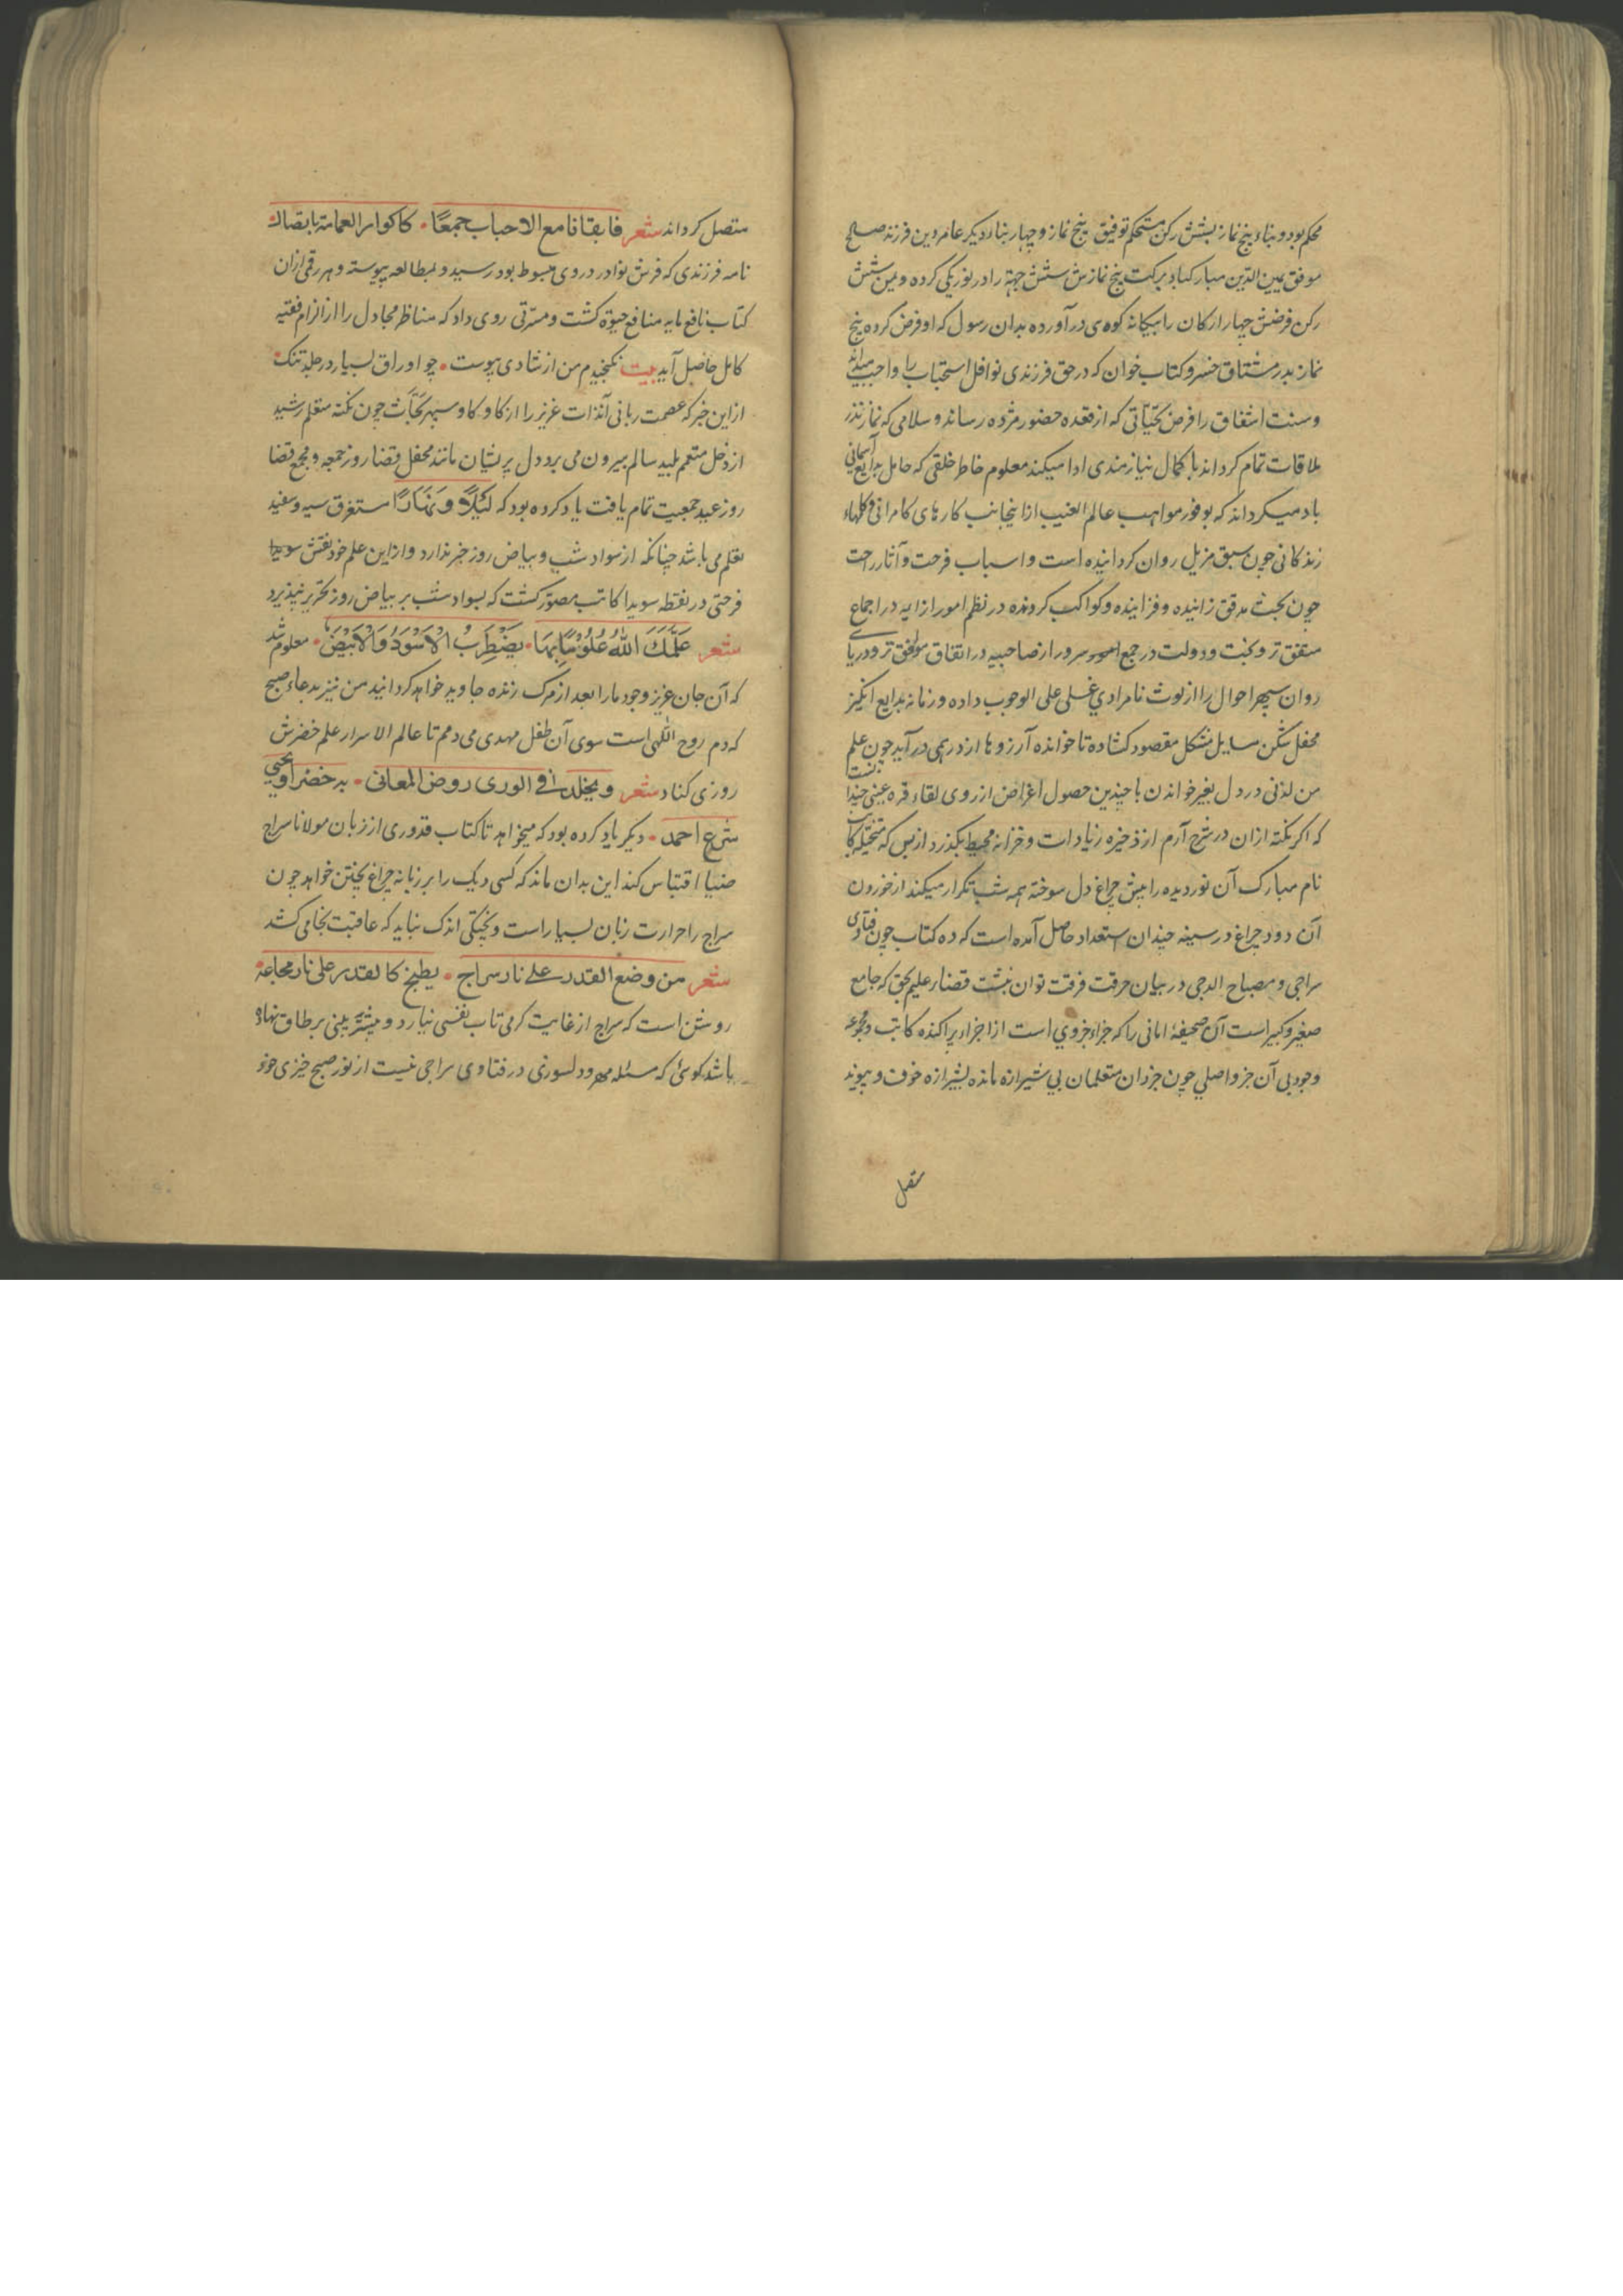 محکم بود و بناء پنج نماز بشش رکن مستحکم توفیق پنج نماز و چهار بنا دیگر عامر دین فرزند صالح
موفق یمین الدین مبارکباد برکت پنج نمازش شش جهة را در نور یکی کرده و یمن شش
رکن فرضش چهار ارکان را بیکانه کوهی در آورده بدان رسول که او فرض کرده پنج
نماز پدر مشتاق خسرو کتاب خوان که در حق فرزندی نوافل استحباب را واجب میداند
و سنت اشفاق را فرض تحیاتی که از قعده حضور مژده رساند و سلامی که نماز نذر
ملاقات تمام کرداند با کمال نیازمندی ادا میکند معلوم خاطر خلقی که حامل بدایع آسمانی
باد میکرداند که بوفور مواهب عالم الغیب از اینجانب کارهای کامرانی و کلهاء
زندکانی چون سبق مزیل روان کردانیده است و اسباب فرحت و آثار راحت
چون بحث مدقق زاینده و فزاینده و کواکب کرونده در نظم امور از ایه در اجماع
متفق تر و بخت و دولت در جمع سرور از صاحبیه در اتفاق موافق تر و دریای
روان سپهر احوال را از لوث نامرادی غسلی علی الوجوب داده و زمانه بدایع انکیز
محفل شکن مسایل مشکل مقصود کشاده تا خوانده آرزوها از در همی در آید چون علم
من لدنی در دل بغیر خواندن با چندین حصول اغراض از روی لقاء قره عینی چندان
که اکر نکته ازان در شرح آرم از ذخیره زیادات و خزانه محیط بکذرد از بس که متخیله کاتب
نام مبارک آن نور دیده را پیش چراغ دل سوخته همه شب تکرار میکند از خوردن
آن دود چراغ در سینه چندان استعداد حاصل آمده است که ده کتاب چون فتاوی
سراجی و مصباح الدجی در بیان حرقت فرقت توان نبشت قضاء علیم بحق که جامع
صغیر و کبیر است آن صحیفهٔ امانی را که جزاء جزوی است از اجزاء پراکنده کاتب و مجموعه
وجود بی آن جزو اصلی چون جزدان متعلمان بی شیرازه مانده بشیرازه خوف و پیوند
متصل
متصل کرداند شعر فابقانا مع الاحباب جمعًا • کاکوار العمامة باتصال
نامه فرزندی که فرش نوادر در وی مبسوط بود رسید و بمطالعه پیوسته و هر رقمی ازان
کتاب نافع مایه منافع حیوة کشت و مسرتی روی داد که مناظر مجادل را از الزام فقیه
کامل حاصل آید بیت نکنجیدم من از شادی پوست • چو اوراق بسیار در جلد تنک
از این خبر که عصمت ربانی آنذات عزیز را از کاو کاو سپهر بحاث چون نکته متعلم رشید
از دخل متعلم بلید سالم بیرون می برد دل پریشان مانند محفل قضا روز جمعه و مجمع قضا
روز عید جمعیت تمام یافت یاد کرده بود که لَیْلًا وَنَهَارًا مستغرق سیه و سفید
تعلم می باشد چنانکه از سواد شب و بیاض روز خبر ندارد و از این علم خود نقش سویدا
فرحتی در نقطه سویدا کاتب مصور کشت که بسواد شب بر بیاض روز تحریر نپذیرد
شعر عَلَّمَكَ اللّٰهُ عُلُوْمًا بِهَا • یَضْطَرِبُ الْاَسْوَدُ وَالْاَبْیَضُ • معلوم شد
که آن جان عزیز وجود ما را بعد از مرک زنده جاوید خواهد کردانید من نیز بدعاء صبح
که دم روح اللٰهی است سوی آن طفل مهدی می دمم تا عالم الاسرار علم خضرش
روزی کناد شعر و یخلد فی الوری روض المعانی • به خضراویحیی
شرع احمد • دیکر یاد کرده بود که میخواهد تا کتاب قدوری از زبان مولانا سراج
ضیا اقتباس کند این بدان ماند که کسی دیک را بر زبانه چراغ پختن خواهد چون
سراج را حرارت زبان بسیار است و پختکی اندک نباید که عاقبت بخامی کشد
شعر من وضع القدر علی نار سراج • یطبخ کالقدر علی نار مجاعة •
روشن است که سراج از غایت کرمی تاب نفسی نیارد و بیشتر بینی بر طاق نهاده
باشد کوئی که مسئله مهر و دلسوزی در فتاوی سراجی نیست از نور صبح خیزی خود